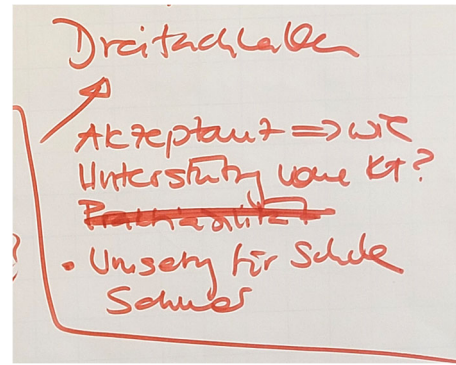 Dreifachhallen
Akzeptanz => wie
Unterstützg vone KT?
Praktikabilität
• Umsetzg für Schule
Schwer